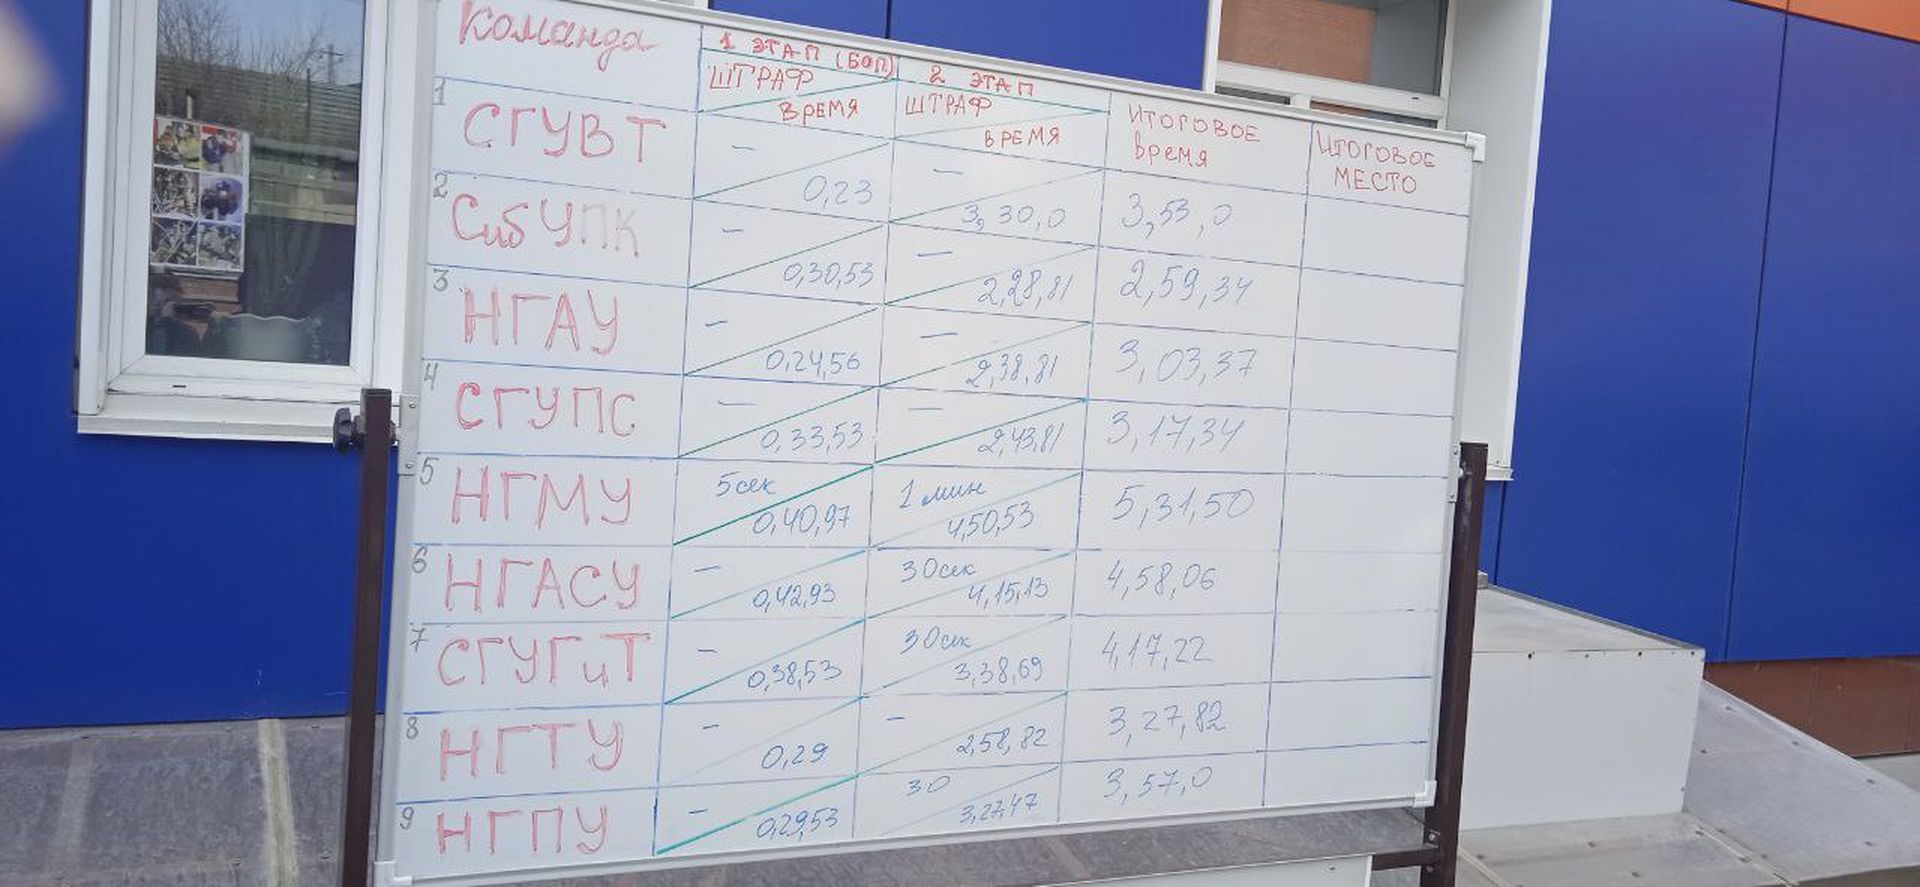 Команда
1 ЭТАП (БОП)
2 ЭТАП
ШТРАФ
ВРЕМЯ
ШТРАФ
ВРЕМЯ
ИТОГОВОЕ
Время
ИТОГОВОЕ
МЕСТО
1 СГУВТ
—
0,23
—
3,30,0
3,53,0
2 СибУПК
—
0,30,53
—
2,28,81
2,59,34
3 НГАУ
—
0,24,56
—
2,38,81
3,03,37
4 СГУПС
—
0,33,53
—
2,43,81
3,17,34
5 НГМУ
5 сек
0,40,97
1 мин
4,50,53
5,31,50
6 НГАСУ
—
0,42,93
30сек
4,15,13
4,58,06
7 СГУГиТ
—
0,38,53
30сек
3,38,69
4,17,22
8 НГТУ
—
0,29
—
2,58,82
3,27,82
9 НГПУ
—
0,29,53
30
3,27,47
3,57,0